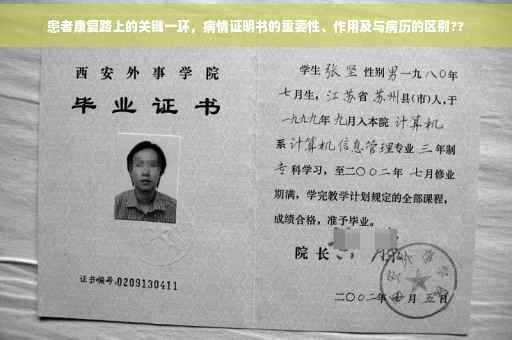 患者康复路上的关键一环，病情证明书的重要性、作用及与病历的区别??
西安外事学院
毕业证书
证书编号:0209130411
学生张坚性别男一九八〇年
七月生，江苏省苏州县(市)人,于
一九九九年九月入本院计算机
系计算机信息管理专业三年制
专科学习，至二〇〇二年七月修业
期满，学完教学计划规定的全部课程，
成绩合格，准予毕业。
院长
二〇〇二年 月五日